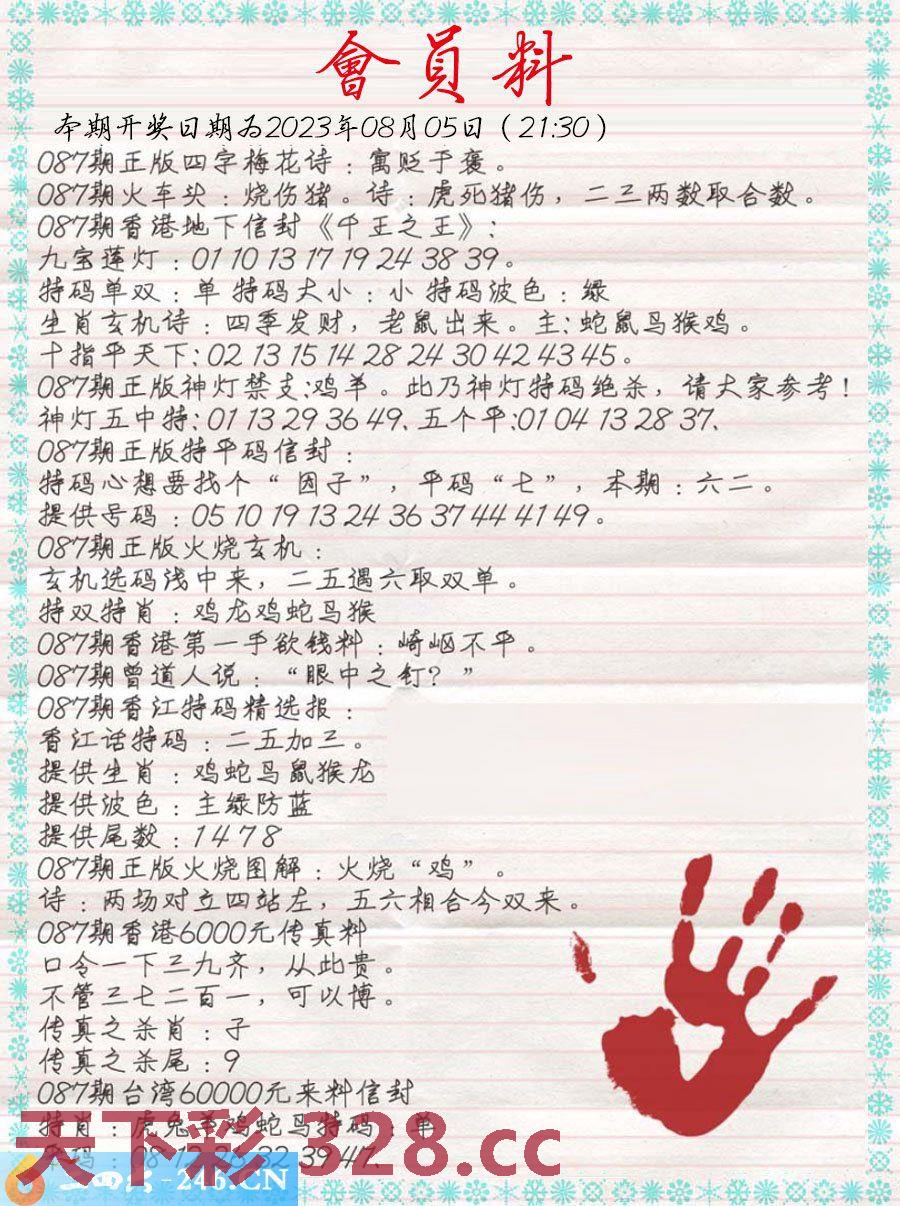 會員料
本期开奖日期为2023年08月05日（21:30）
087期正版四字梅花诗：寓贬于褒。
087期火车头：烧伤猪。诗：虎死猪伤，二三两数取合数。
087期香港地下信封《千王之王》：
九宝莲灯：01 10 13 17 19 24 38 39。
特码单双：单 特码大小：小 特码波色：绿
生肖玄机诗：四季发财，老鼠出来。主：蛇鼠马猴鸡。
十指平天下：02 13 15 14 28 24 30 42 43 45。
087期正版神灯禁支：鸡羊。此乃神灯特码绝杀，请大家参考！
神灯五中特：01 13 29 36 49、五个平：01 04 13 28 37、
087期正版特平码信封：
特码心想要找个“因子”，平码“七”，本期：六二。
提供号码：05 10 19 13 24 36 37 44 41 49。
087期正版火烧玄机：
玄机选码浅中来，二五遇六取双单。
特双特肖：鸡龙鸡蛇马猴
087期香港第一手欲钱料：崎岖不平。
087期曾道人说：“眼中之钉？”
087期香江特码精选报：
香江话特码：二五加三。
提供生肖：鸡蛇马鼠猴龙
提供波色：主绿防蓝
提供尾数：1 4 7 8
087期正版火烧图解：火烧“鸡”。
诗：两场对立四站左，五六相合今双来。
087期香港6000元传真料
口令一下三九齐，从此贵。
不管三七二百一，可以博。
传真之杀肖：子
传真之杀尾：9
087期台湾60000元来料信封
特肖：虎兔羊鸡蛇马特码：单
天下彩 328.cc
39 47、
二四六-246.CN